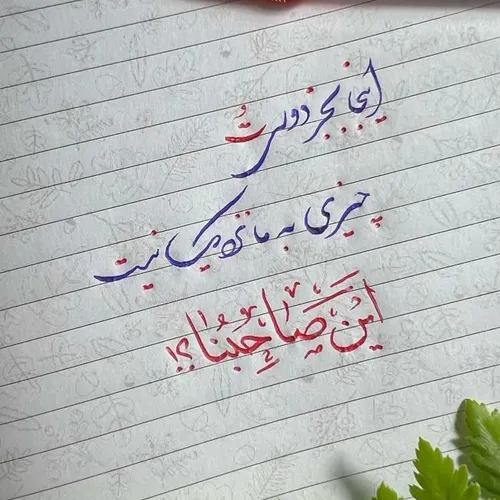 اینجا بجز دوریِ تُ
چیزی به ما نزدیک نیست
اَیْنَ صَاحِبُنا؟!